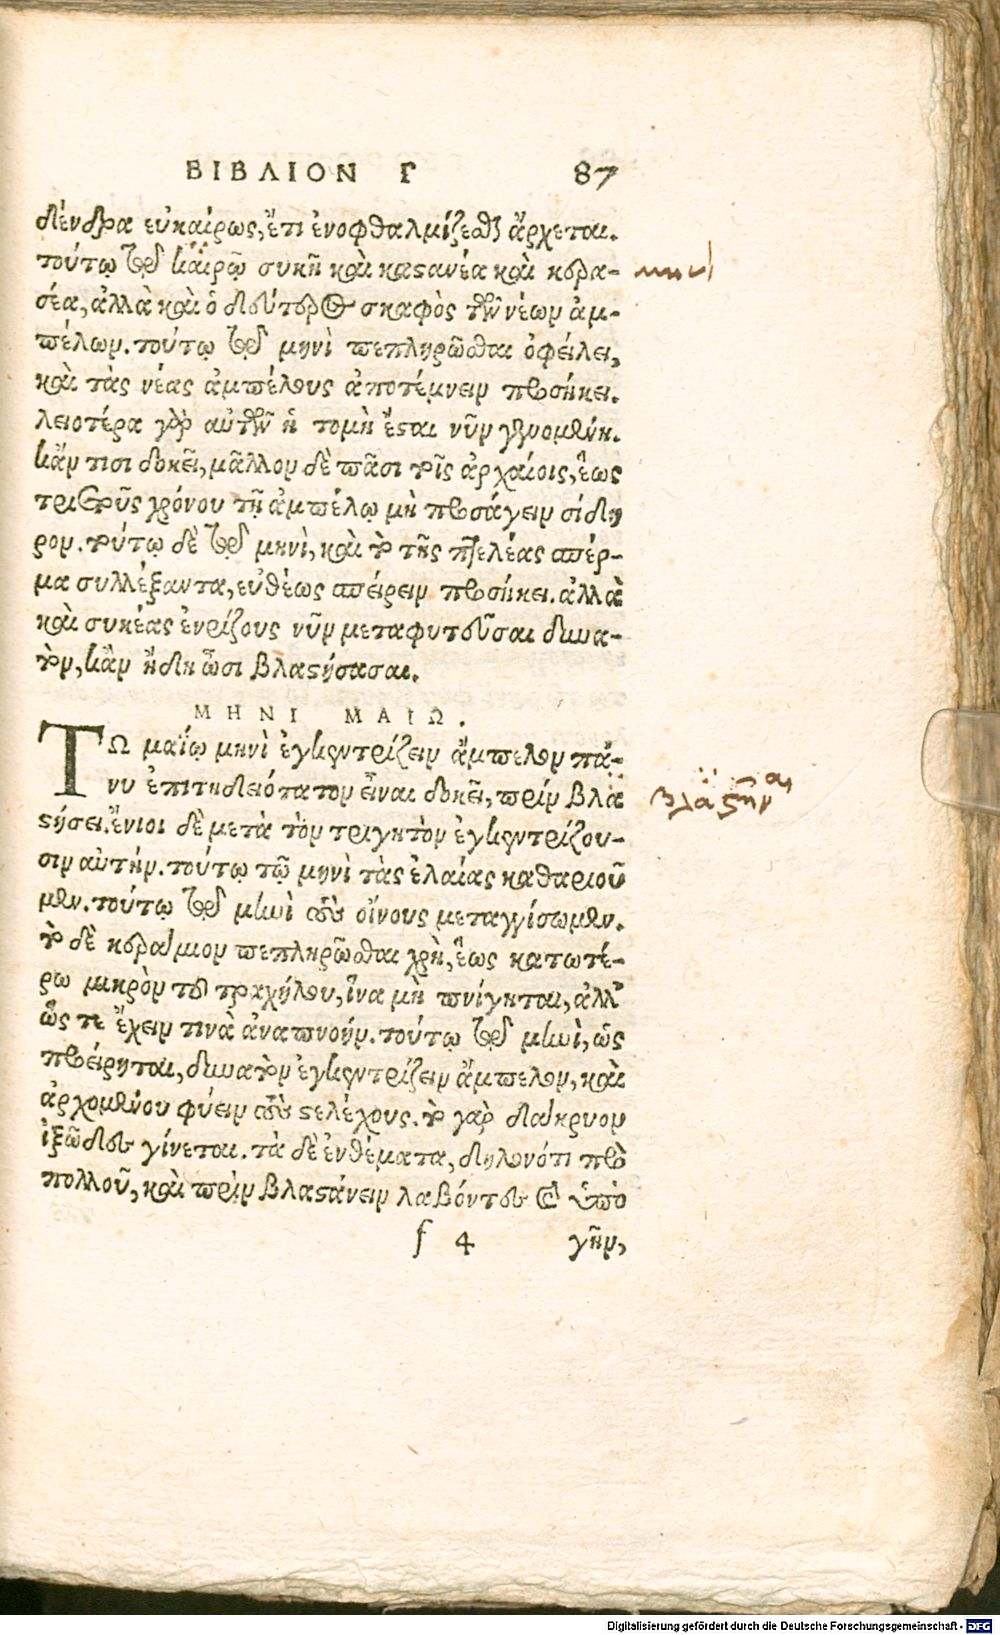 ΒΙΒΛΙΟΝ Γ 87
δένδρα εὐκαίρως, ἔτι ἐνοφθαλμίζεσθαι ἄρχεται.
τούτῳ τῷ καιρῷ συκῆ καὶ καστανέα καὶ κερα-
σέα, ἀλλὰ καὶ ὁ δεύτερος σκαφὸς τῶν νέων ἀμ-
πέλων. τούτῳ τῷ μηνὶ πεπληρῶσθαι ὀφείλει,
καὶ τὰς νέας ἀμπέλους ἀποτέμνειν προσήκει.
λειοτέρα γὰρ αὐτῶν ἡ τομὴ ἔσται νῦν γενομένη.
κἄν τισι δοκεῖ, μᾶλλον δὲ πᾶσι τοῖς ἀρχαίοις, ἕως
τριετοῦς χρόνου τῇ ἀμπέλῳ μὴ προσάγειν σίδη
ρον. τούτῳ δὲ τῷ μηνὶ, καὶ τὸ τῆς πτελέας σπέρ-
μα συλλέξαντα, εὐθέως σπείρειν προσήκει. ἀλλὰ
καὶ συκέας ἐνρίζους νῦν μεταφυτεῦσαι δυνα-
τὸν, κἂν ἤδη ὦσι βλαστήσασαι.
ΜΗΝΙ ΜΑΙΩ.
ΤΩ μαΐῳ μηνὶ ἐγκεντρίζειν ἄμπελον πά-
νυ ἐπιτηδειότατον εἶναι δοκεῖ, πρὶν βλα
στήσει. ἔνιοι δὲ μετὰ τὸν τρυγητὸν ἐγκεντρίζου-
σιν αὐτήν. τούτῳ τῷ μηνὶ τὰς ἐλαίας καθαριοῦ
μεν. τούτῳ τῷ μηνὶ τοὺς οἴνους μεταγγίσωμεν.
τὸ δὲ κεράμιον πεπληρῶσθαι χρὴ, ἕως κατωτέ-
ρω μικρὸν τοῦ τραχήλου, ἵνα μὴ πνίγηται, ἀλλ'
ὥς τε ἔχειν τινὰ ἀναπνοήν. τούτῳ τῷ μηνὶ, ὡς
προείρηται, δυνατὸν ἐγκεντρίζειν ἄμπελον, καὶ
ἀρχομένου φύειν τοῦ στελέχους. τὸ γὰρ δάκρυον
ἰξῶδες γίνεται. τὰ δὲ ἐνθέματα, δηλονότι πρὸ
πολλοῦ, καὶ πρὶν βλαστάνειν λαβόντες καὶ ὑπὸ
f 4 γῆν,
μηνὶ
βλαστῆσαι
Digitalisierung gefördert durch die Deutsche Forschungsgemeinschaft - DFG